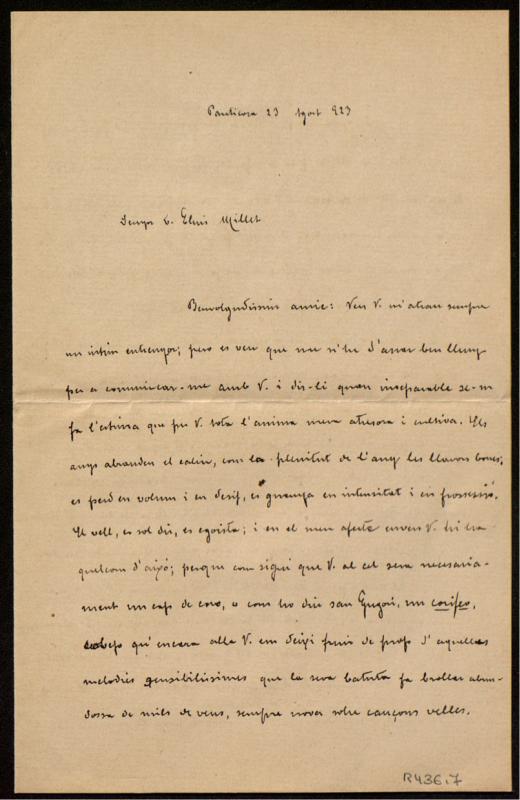 Panticosa 23 Agost 923
Senyor D. Lluis Millet
Benvolgudissim amic: Ven V. m'atrau sempre
un intim entrenyor; pero es veu que me n'he d'anar ben lluny
per a comunicar-me amb V. i dir-li quan inseparable se-m
fa l'estima que per V. tota l'anima meva atresora i cultiva. Els
anys abranden el caliu, com la plenitut de l'any les llavors bones;
es perd en volum i en desif, es guanya en intensitat i en possessió.
El vell, es sol dir, es egoista; i en el meu afecte envers V. hi ha
quelcom d'aixó; perque com sigui que V. al cel sera necesaria-
ment un cap de coro, o com ho diu san Gregori, un corifeo,
qu'encara alla V. em deixi fruir de prop d'aquelles
melodies sensibilissimes que la seva batuta fa brollar abun-
dossa de mils de veus, sempre nova sobre cançons velles.
R436.7